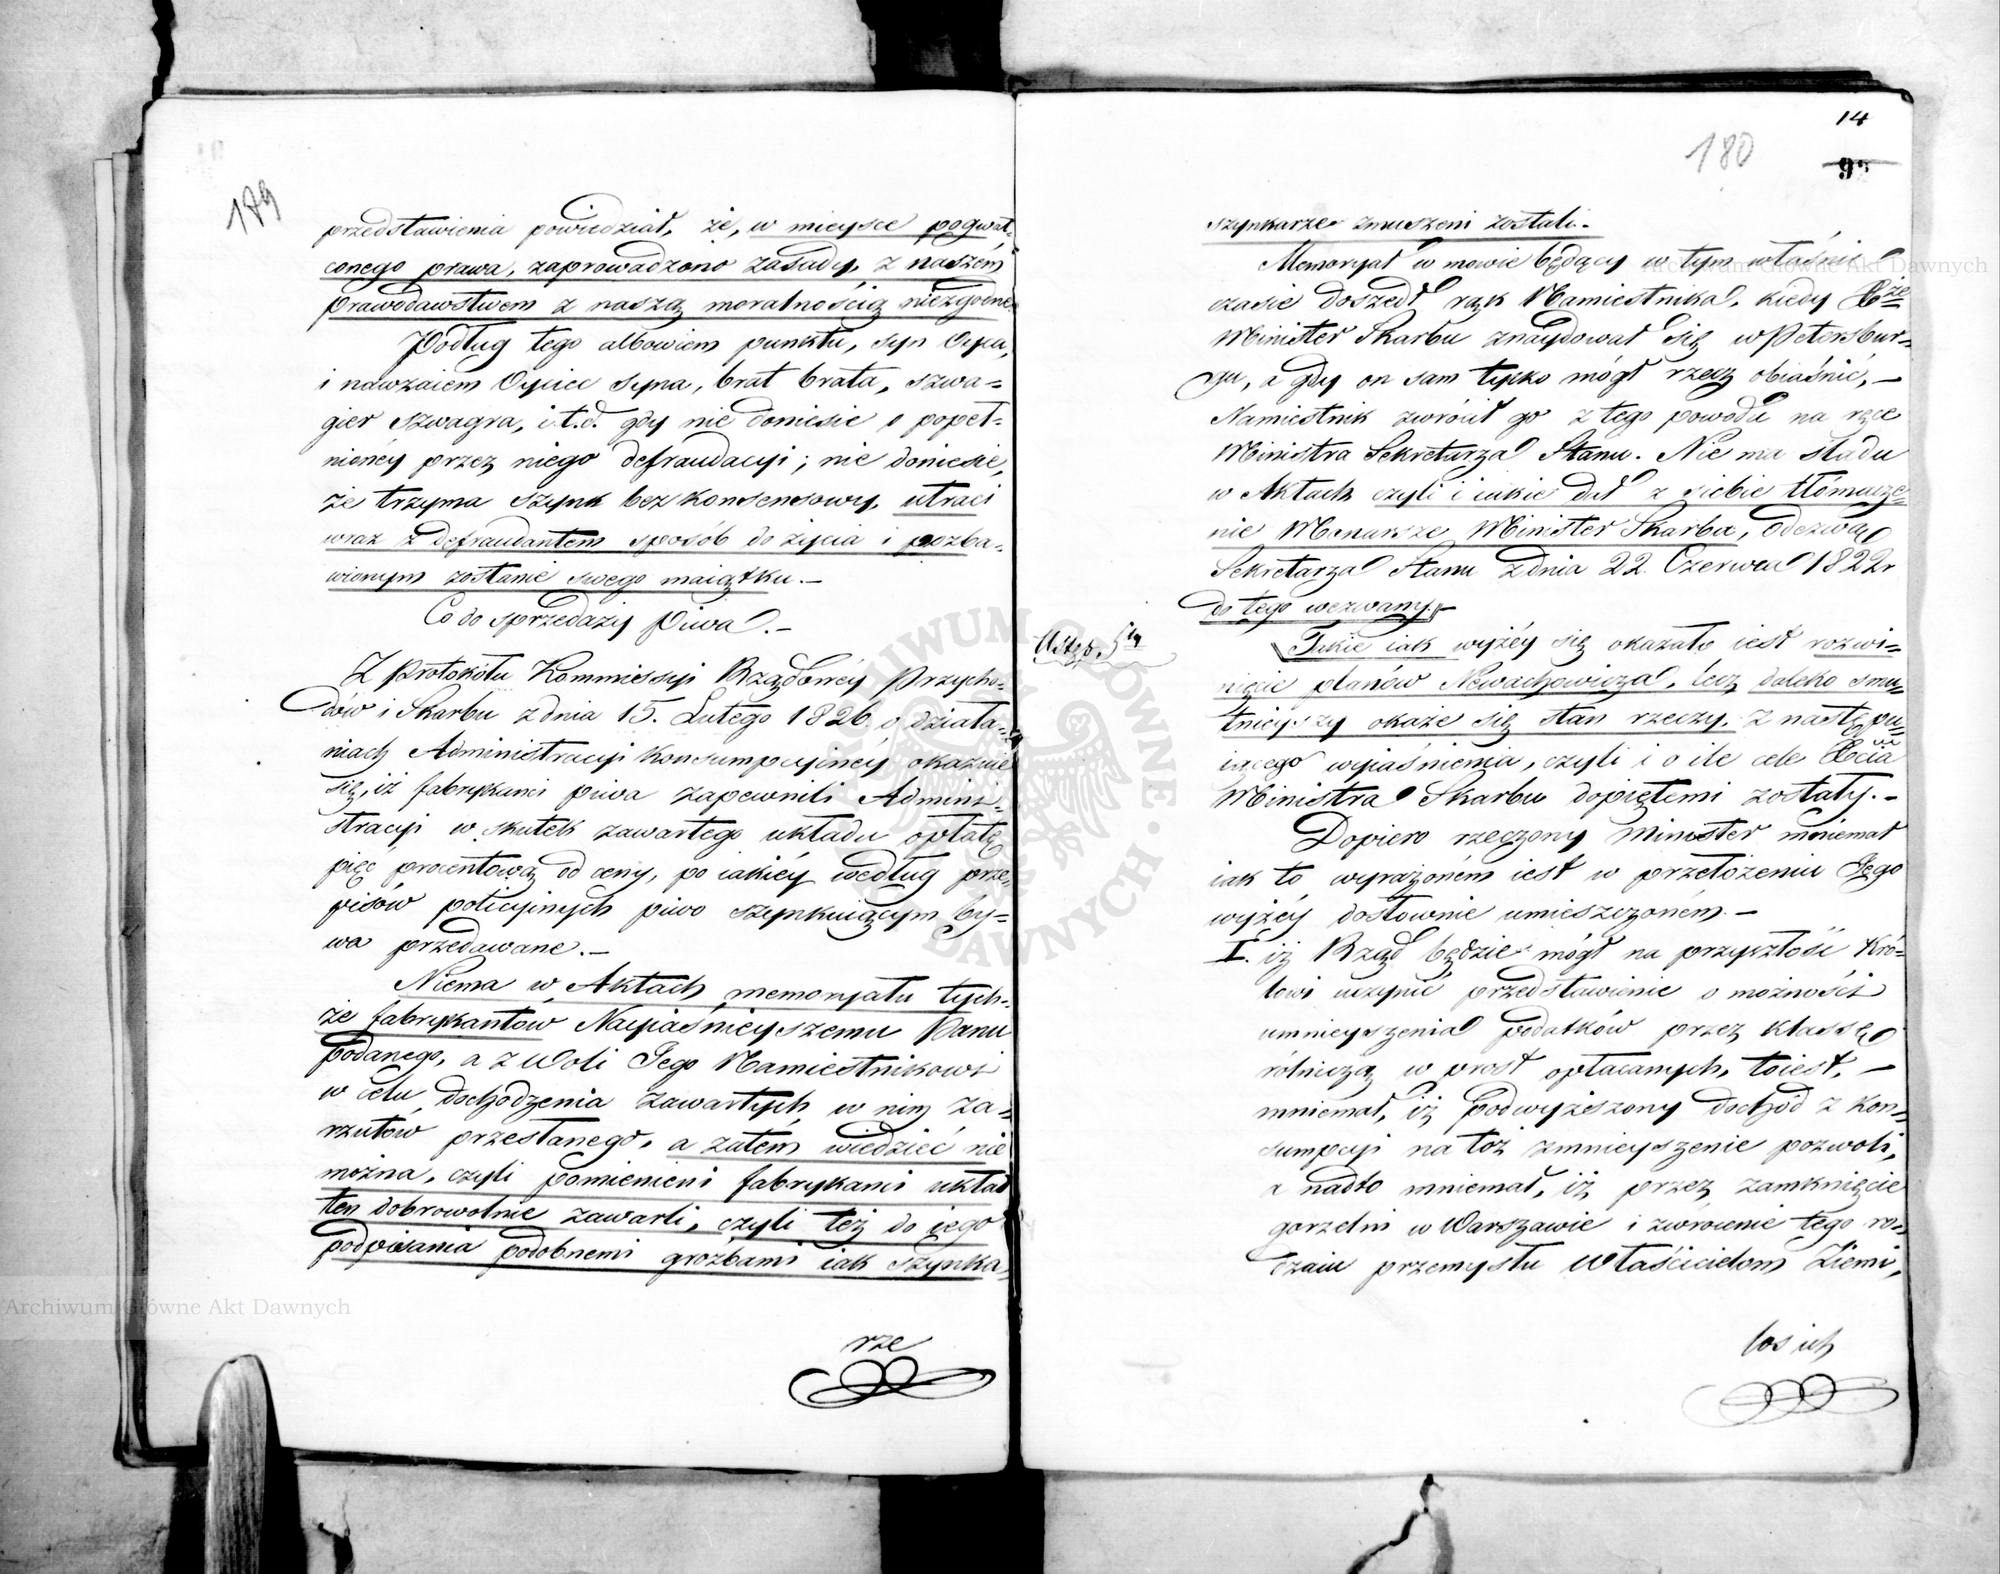 179
przedstawienia powiedział, że, w mieysce pogwał-
conego prawa, zaprowadzono zasady, z naszem
prawodawstwem z naszą moralnością niezgodne.
Podług tego albowiem punktu, syn Oyca,
i nawzaiem Oyciec syna, brat brata, szwa-
gier szwagra, i.t.d. gdy nie doniesie o popeł-
nionéy przez niego defraudacyi; nie doniesie,
że trzyma szynk bez konsensowy, utraci
wraz z defraudantem sposób do życia i pozba-
wionym zostanie swego maiątku.-
Co do sprzedaży Piwa.-
Z Protokółu Kommissyi Rządowéy Przycho-
dów i Skarbu z dnia 15. Lutego 1826 o działa-
niach Administracyi Konsumpcyinéy okazuie
się, iż fabrykanci piwa zapewnili Admini-
stracyi w skutek zawartego układu opłatę
pięć procentową od ceny, po iakiéy według prze-
pisów policyinych piwo szynkuiącym by-
wa przedawane.-
Niema w Aktach memoryału tych-
że fabrykantów Nayiaśnieyszemu Panu
podanego, a z Woli Jego Namiestnikowi
w celu dochodzenia zawartych w nim za-
rzutów przesłanego, a zatém wiedzieć nie
można, czyli pomienieni fabrykanci układ
ten dobrowolnie zawarli, czyli też do iego
podpisania podobnemi groźbami iak szynka-
rze
14
180
szynkarze zmuszeni zostali.-
Memoryał w mowie będący w tym właśnie
czasie doszedł rąk Namiestnika, kiedy Xże
Minister Skarbu znaydował się w Petersbur-
gu, a gdy on sam tylko mógł rzecz obiaśnić,-
Namiestnik zwrócił go z tego powodu na ręce
Ministra Sekretarza Stanu. Nie ma śladu
w Aktach czyli i iakie dał z siebie tłómacze-
nie Monarsze Minister Skarbu, odezwą
Sekretarza Stanu z dnia 22. Czerwca 1822r
do tego wezwany.-
Ustęp. 5ty
Takie iak wyżéy się okazało iest rozwi-
nięcie planów Newachowicza, lecz daleko smu-
tnieyszy okaże się stan rzeczy. z następu-
iącego wyiaśnienia, czyli i o ile cele Xcia
Ministra Skarbu dopiętemi zostały.-
Dopiero rzeczony Minister mniemał
iak to wyrażoném iest w przełożeniu Jego
wyżéy dosłownie umieszczoném.-
I. iż Rząd będzie mógł na przyszłość Kró-
lowi uczynić przedstawienie o możności
umnieyszenia podatków przez klassę
rólniczą w prost opłacanych, toiest,-
mniemał, iż podwyższony dochód z kon-
sumpcyi na toż zmnieyszenie pozwoli,
a nadto mniemał, iż przez zamknięcie
gorzelni w Warszawie i zwrócenie tego ro-
dzaiu przemysłu Właścicielom Ziemi,
los ich
Archiwum Główne Akt Dawnych
Archiwum Główne Akt Dawnych
ARCHIWUM GŁÓWNE AKT DAWNYCH